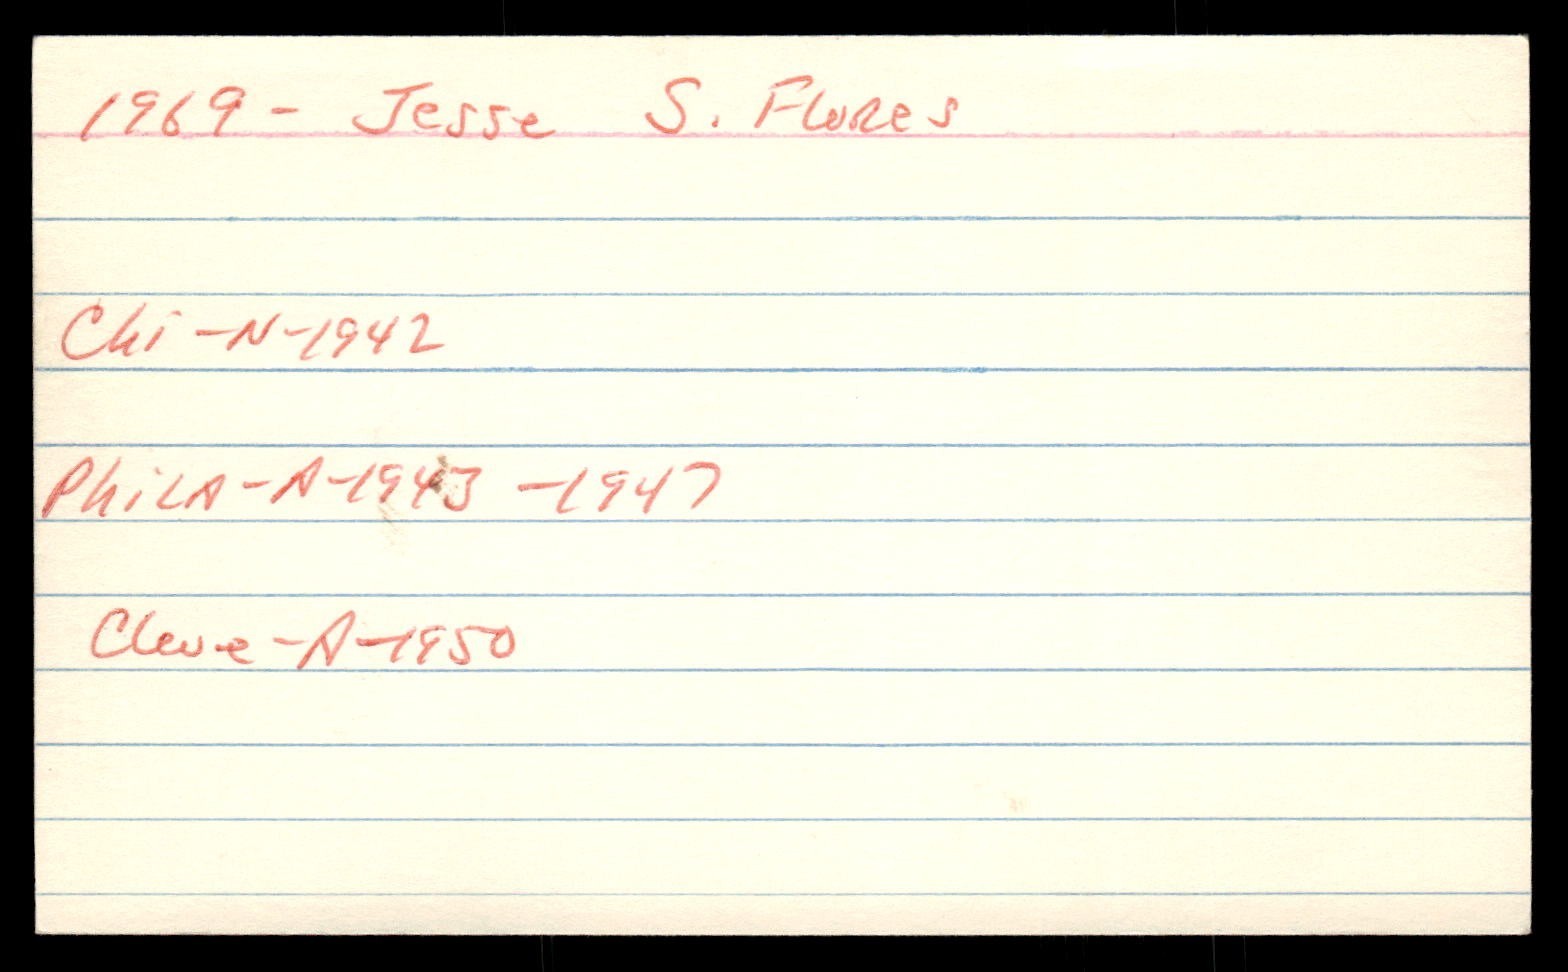 1969 - Jesse S. Flores
Chi - N - 1942
Phila - A - 1943 - 1947
Cleve - A - 1950